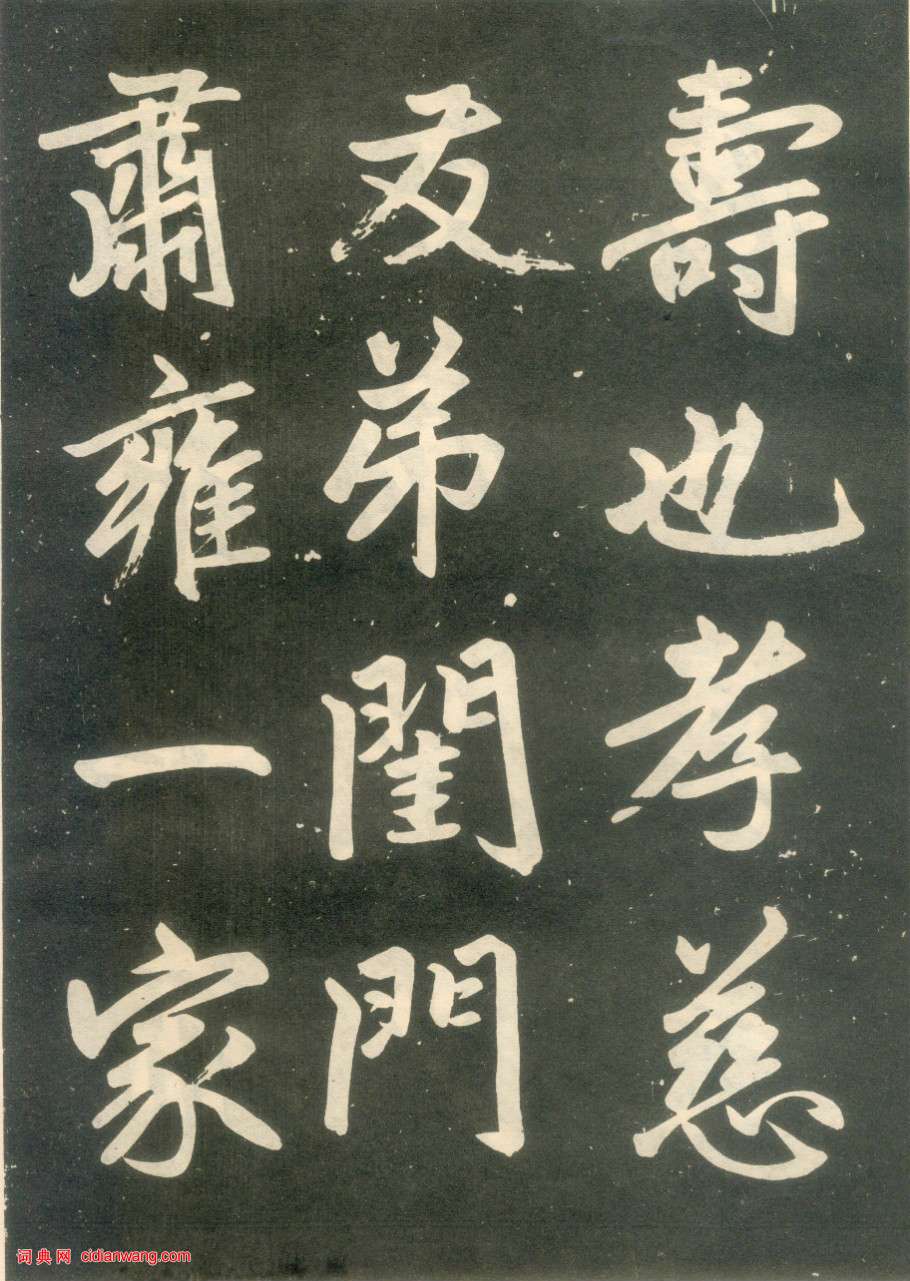 壽也孝慈
友弟閨門
肅雍一家
词典网 cidianwang.com